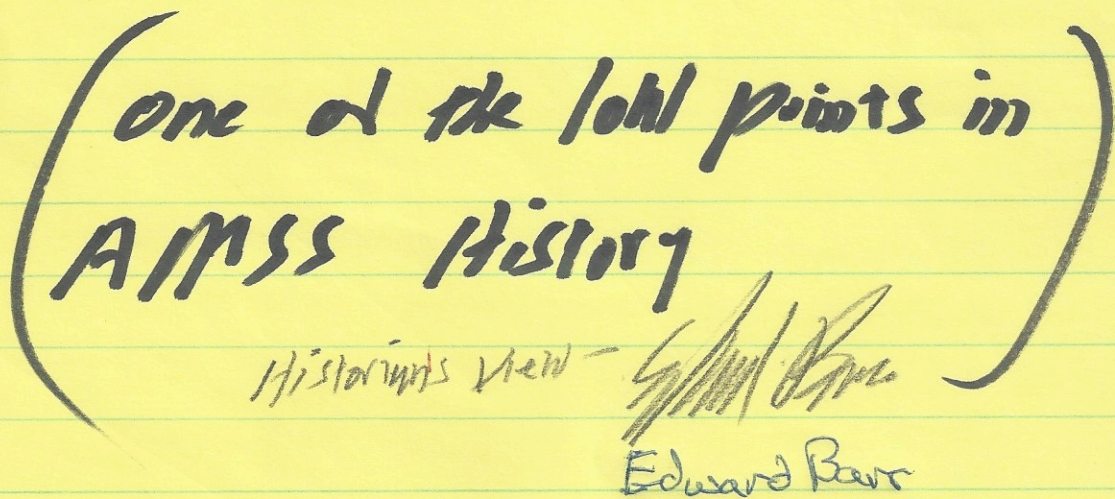 (one of the low points in
AMSS History)
Historian's view - Edward Barr
Edward Barr